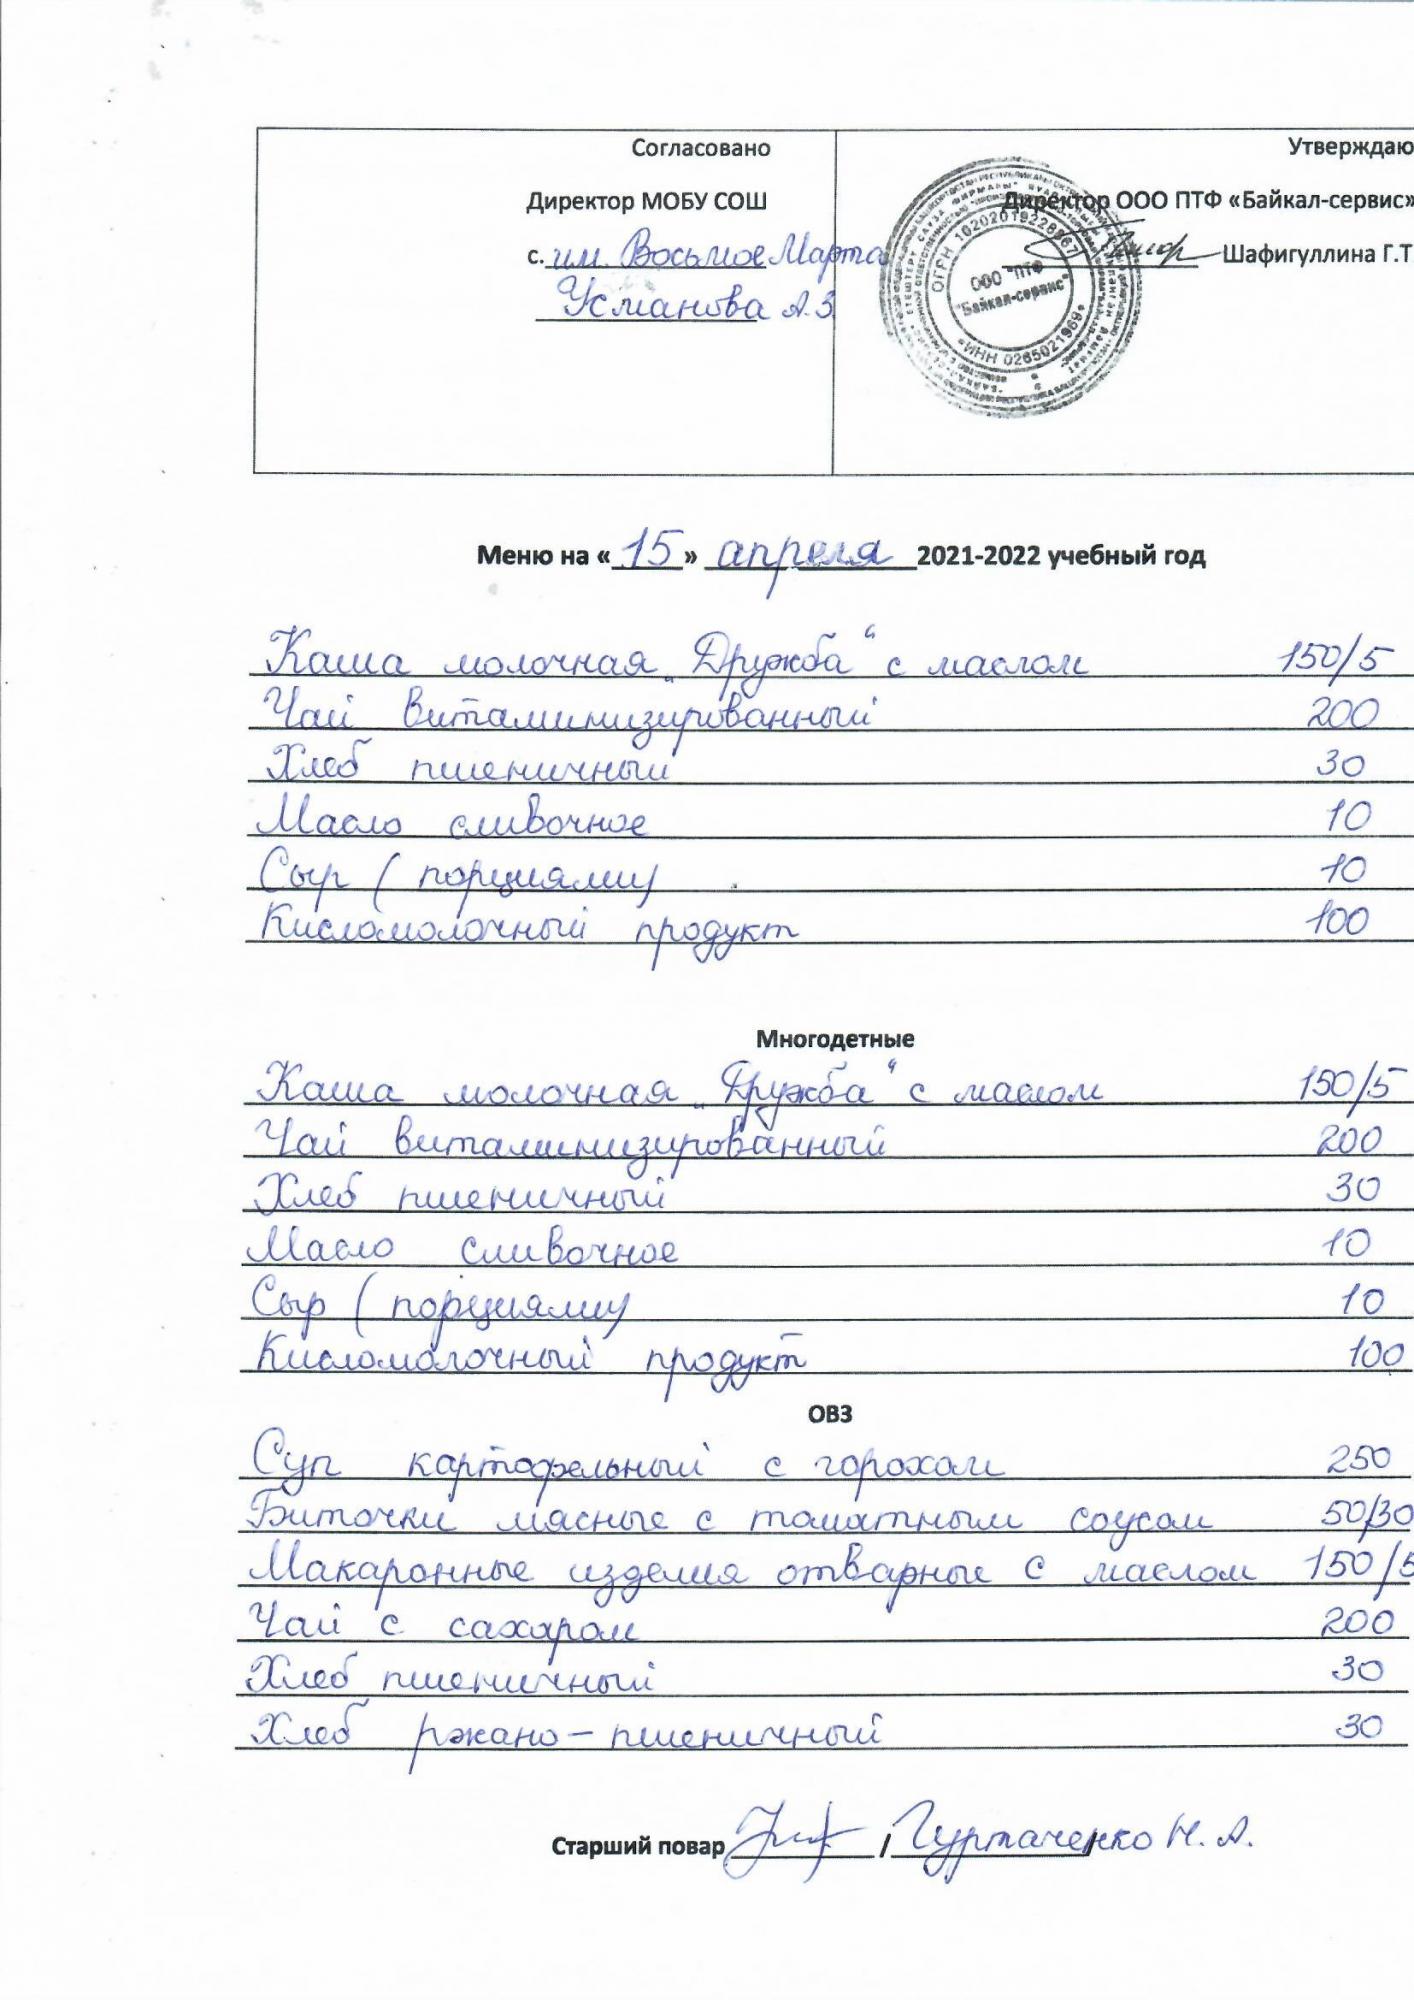 Согласовано
Директор МОБУ СОШ
с. им. Восьмое Марта
Усманова А.З.
Утверждаю
Директор ООО ПТФ «Байкал-сервис»
Шафигуллина Г.Т
ОГРН 1020201922886
ООО "ПТФ
"Байкал-сервис"
ИНН 0265021969
Меню на «15» апреля 2021-2022 учебный год
Каша молочная „Дружба“ с маслом 150/5
Чай витаминизированный 200
Хлеб пшеничный 30
Масло сливочное 10
Сыр (порциями) 10
Кисломолочный продукт 100
Многодетные
Каша молочная „Дружба“ с маслом 150/5
Чай витаминизированный 200
Хлеб пшеничный 30
Масло сливочное 10
Сыр (порциями) 10
Кисломолочный продукт 100
ОВЗ
Суп картофельный с горохом 250
Биточки мясные с томатным соусом 50/30
Макаронные изделия отварные с маслом 150/5
Чай с сахаром 200
Хлеб пшеничный 30
Хлеб ржано-пшеничный 30
Старший повар / Гуртаченко Н. А.